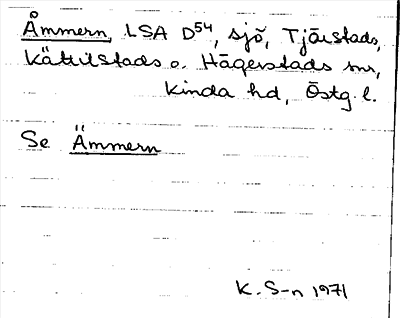 Åmmern, LSA D54, sjö, Tjärstads,
Kättilstads o. Hägerstads snr,
Kinda hd, Östg. l.
Se Ämmern
K. S-n 1971